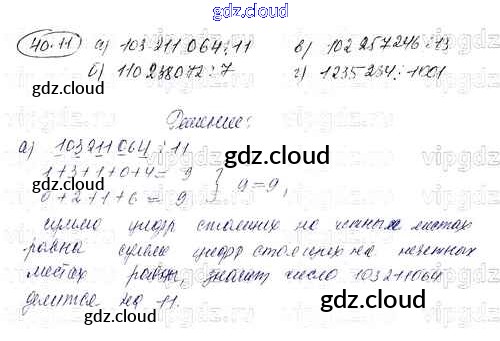 gdz.cloud
40.11 а) 103 211 064 : 11 в) 102 257 246 : 13
б) 110 238 072 : 7 г) 1235 234 : 1001
Решение:
а) 103211064 : 11
1+3+1+0+4= 9
0+2+1+6 = 9 } 9=9,
сумма цифр стоящих на четных местах
равна сумме цифр стоящих на нечетных
местах значит число 103211064
делится на 11.
gdz.cloud
gdz.cloud
gdz.cloud
gdz.cloud
gdz.cloud
gdz.cloud